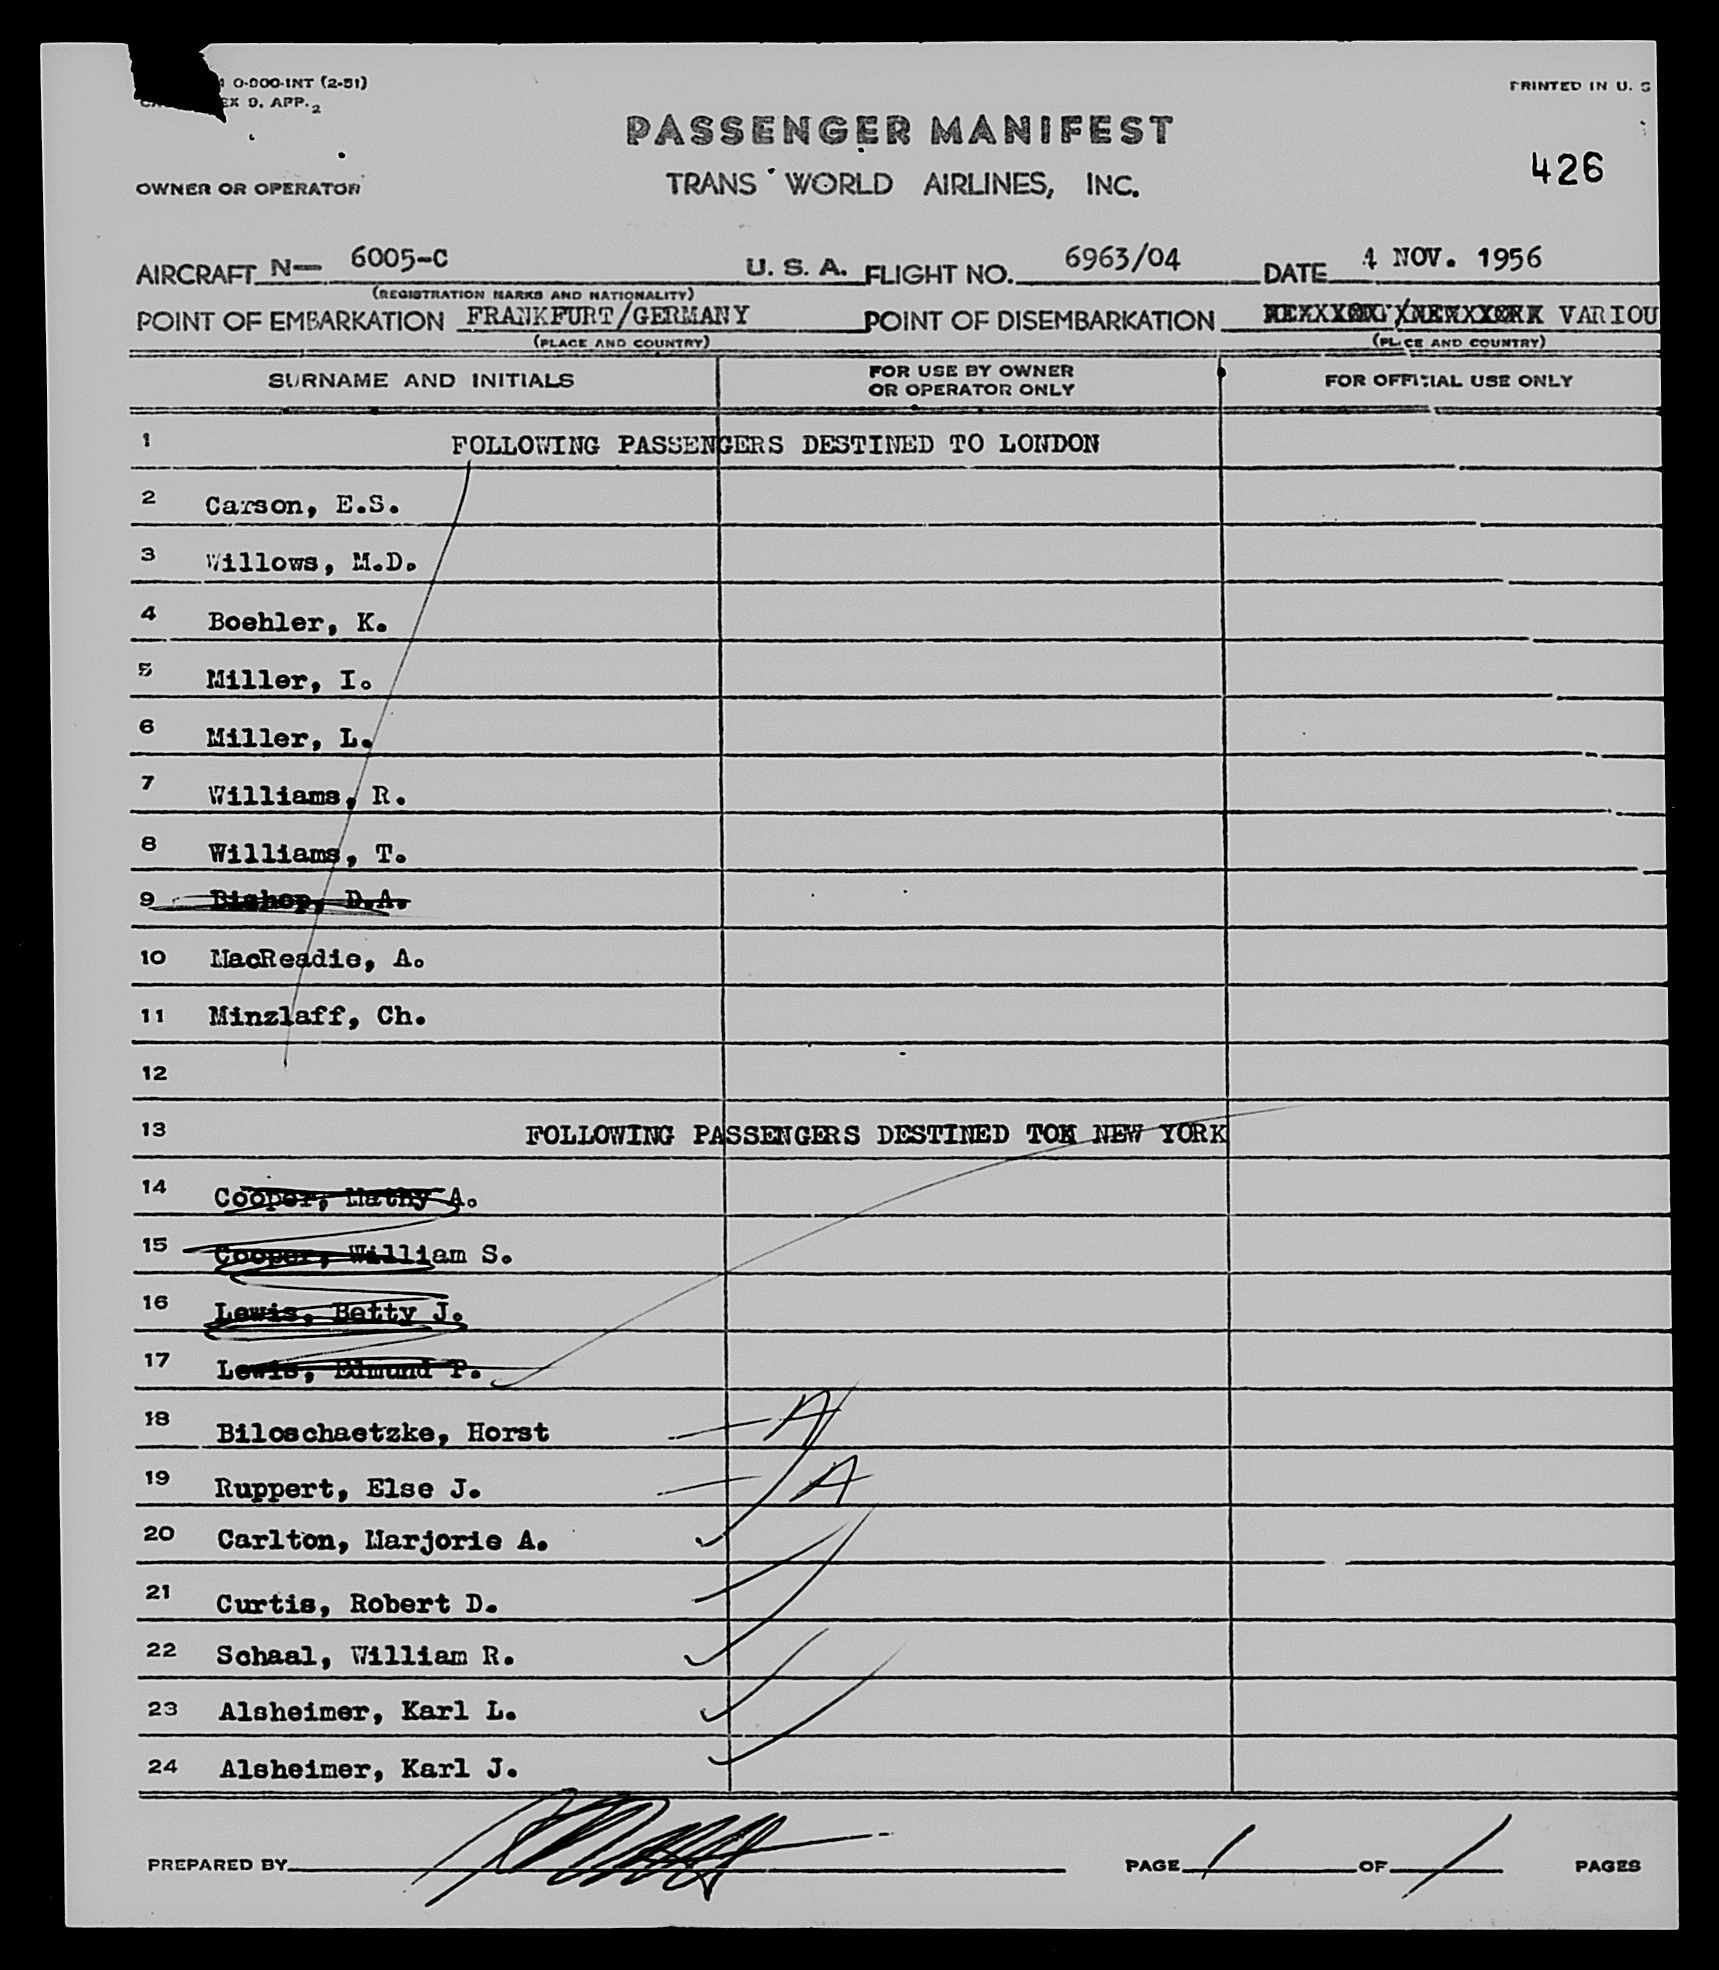 O-800-INT (2-51)
EX 9. APP. 2
PRINTED IN U. S
PASSENGER MANIFEST
426
OWNER OR OPERATOR
TRANS WORLD AIRLINES, INC.
AIRCRAFT N— 6005-C U. S. A. FLIGHT NO. 6963/04 DATE 4 NOV. 1956
(REGISTRATION MARKS AND NATIONALITY)
POINT OF EMBARKATION FRANKFURT/GERMANY POINT OF DISEMBARKATION VARIOU
(PLACE AND COUNTRY) (PLACE AND COUNTRY)
SURNAME AND INITIALS FOR USE BY OWNER OR OPERATOR ONLY FOR OFFICIAL USE ONLY
1 FOLLOWING PASSENGERS DESTINED TO LONDON
2 Carson, E.S.
3 Willows, M.D.
4 Boehler, K.
5 Miller, I.
6 Miller, L.
7 Williams, R.
8 Williams, T.
9 Bishop, D.A.
10 MacReadie, A.
11 Minzlaff, Ch.
12
13 FOLLOWING PASSENGERS DESTINED TO NEW YORK
14 Cooper, Mathy A.
15 Cooper, William S.
16 Lewis, Betty J.
17 Lewis, Edmund P.
18 Biloschaetzke, Horst A
19 Ruppert, Else J. A
20 Carlton, Marjorie A.
21 Curtis, Robert D.
22 Schaal, William R.
23 Alsheimer, Karl L.
24 Alsheimer, Karl J.
PREPARED BY PAGE 1 OF 1 PAGES